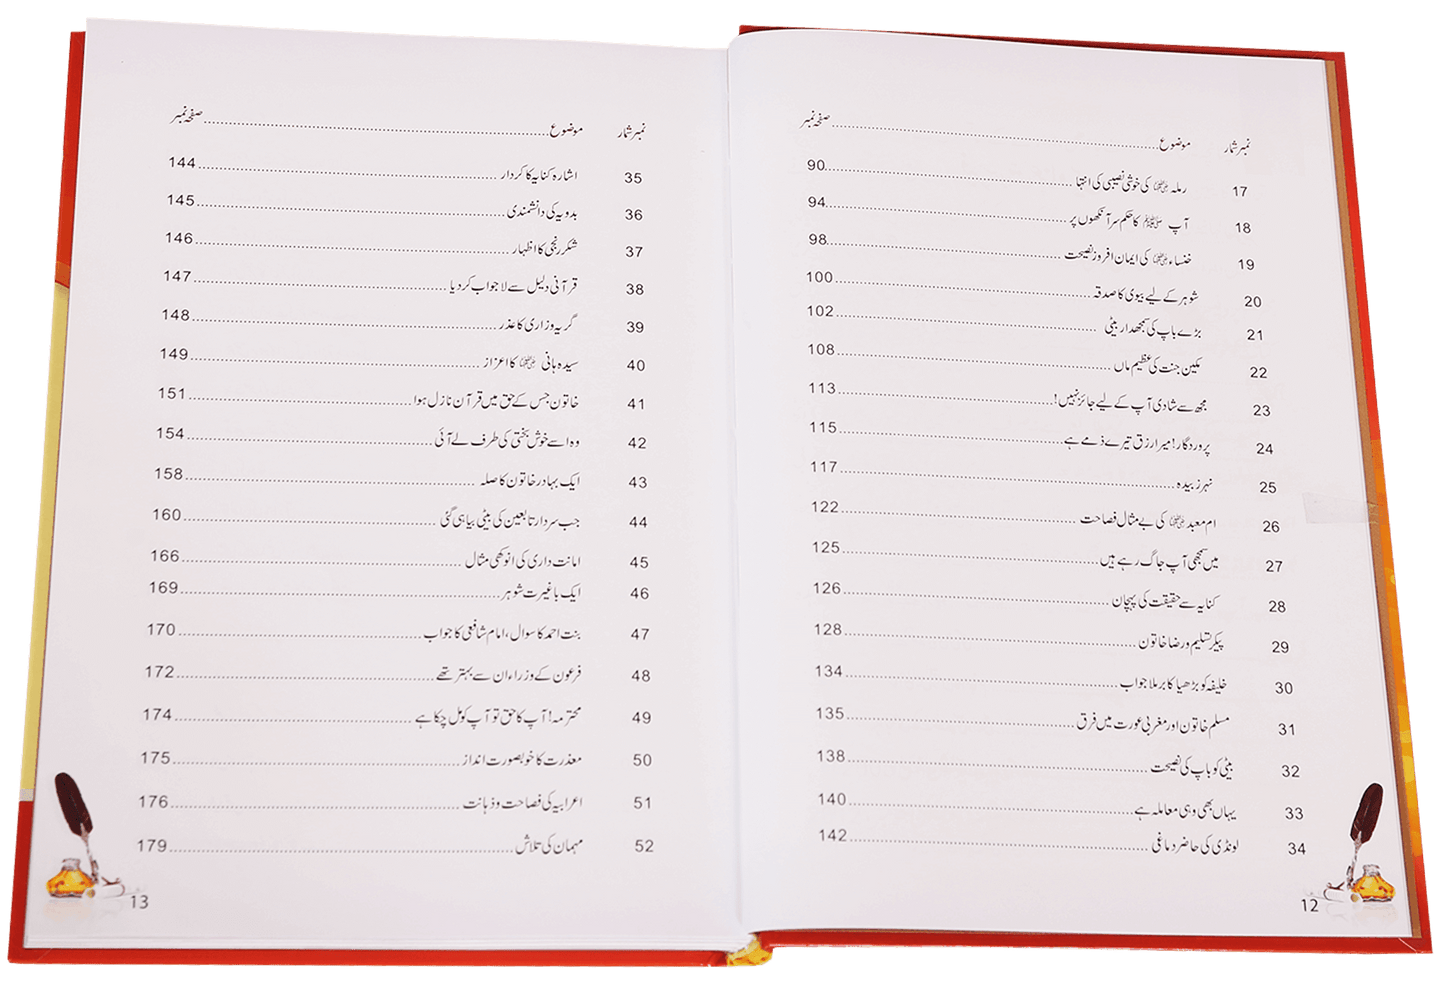 نمبر شمار موضوع ........ صفحہ نمبر
17 رملہ رضی اللہ عنہا کی خوش نصیبی کی انتہا ........ 90
18 آپ ﷺ کا حکم سر آنکھوں پر ........ 94
19 خنساء رضی اللہ عنہا کی ایمان افروز نصیحت ........ 98
20 شوہر کے لیے بیوی کا صدقہ ........ 100
21 بڑے باپ کی سمجھدار بیٹی ........ 102
22 مکین جنت کی عظیم ماں ........ 108
23 مجھ سے شادی آپ کے لیے جائز نہیں! ........ 113
24 پروردگار! میرا رزق تیرے ذمے ہے ........ 115
25 نہر زبیدہ ........ 117
26 ام معبد رضی اللہ عنہا کی بے مثال فصاحت ........ 122
27 میں سمجھی آپ جاگ رہے ہیں ........ 125
28 کنایہ سے حقیقت کی پہچان ........ 126
29 پیکر تسلیم و رضا خاتون ........ 128
30 خلیفہ کو بڑھیا کا برملا جواب ........ 134
31 مسلم خاتون اور مغربی عورت میں فرق ........ 135
32 بیٹی کو باپ کی نصیحت ........ 138
33 یہاں بھی وہی معاملہ ہے ........ 140
34 لونڈی کی حاضر دماغی ........ 142
12
نمبر شمار موضوع ........ صفحہ نمبر
35 اشارہ کنایہ کا کردار ........ 144
36 بدویہ کی دانشمندی ........ 145
37 شکر رنجی کا اظہار ........ 146
38 قرآنی دلیل سے لاجواب کر دیا ........ 147
39 گریہ وزاری کا عذر ........ 148
40 سیدہ ہانی رضی اللہ عنہا کا اعزاز ........ 149
41 خاتون جس کے حق میں قرآن نازل ہوا ........ 151
42 وہ اسے خوش بختی کی طرف لے آئی ........ 154
43 ایک بہادر خاتون کا صلہ ........ 158
44 جب سردار تابعین کی بیٹی بیاہی گئی ........ 160
45 امانت داری کی انوکھی مثال ........ 166
46 ایک باغیرت شوہر ........ 169
47 بنت احمد کا سوال، امام شافعی کا جواب ........ 170
48 فرعون کے وزراء ان سے بہتر تھے ........ 172
49 محترمہ! آپ کا حق تو آپ کو مل چکا ہے ........ 174
50 معذرت کا خوبصورت انداز ........ 175
51 اعرابیہ کی فصاحت و ذہانت ........ 176
52 مہمان کی تلاش ........ 179
13